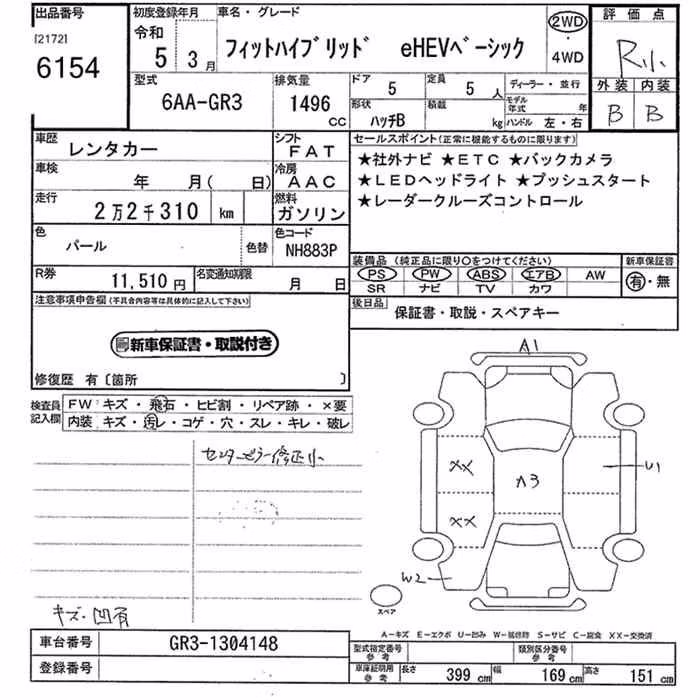 出品番号
[2172]
6154
初度登録年月
令和
5 3月
車名・グレード
フィットハイブリッド eHEVベーシック
2WD
・
4WD
評価点
R小
外装 内装
B B
型式
6AA-GR3
排気量
1496
CC
ドア
5
定員
5 人
形状
ハッチB
積載
kg
ディーラー・並行
モデル年式 年
ハンドル 左・右
車歴
レンタカー
シフト
FAT
車検
年 月( 日)
冷房
AAC
走行
2万2千310 km
燃料
ガソリン
色
パール
色替
色コード
NH883P
R券
11,510円
名変通知期限
月 日
セールスポイント(正常に機能するものに限ります)
★社外ナビ ★ETC ★バックカメラ
★LEDヘッドライト ★プッシュスタート
★レーダークルーズコントロール
装備品 (純正品に限り○をつけてください)
PS PW ABS エアB AW
SR ナビ TV カワ
新車保証書
有・無
後日品
保証書・取説・スペアキー
注意事項申告欄(不具合内容等は具体的に記入して下さい)
新車保証書・取説付き
修復歴 有〔箇所 〕
検査員
記入欄
FW キズ・飛石・ヒビ割・リペア跡・×要
内装 キズ・汚レ・コゲ・穴・スレ・キレ・破レ
センターピラー修正小
キズ・凹有
A1
XX
A3
U1
XX
W2
スペア
A-キズ E-エクボ U-凹み W-補修跡 S-サビ C-腐食 XX-交換済
車台番号
GR3-1304148
登録番号
型式指定番号
参考
類別区分番号
参考
車庫証明用
参考
長さ 399 cm 幅 169 cm 高さ 151 cm